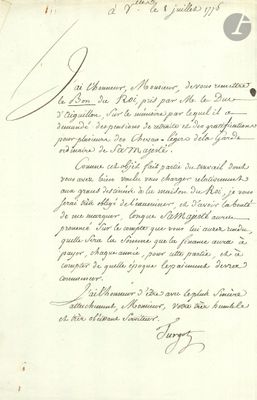 à V.lles le 8 juillet 1775
J'ai l'honneur, Monsieur, de vous remettre
le Bon du Roi, pris par M. le Duc
d'aiguillon, sur le mémoire par lequel il a
demandé des pensions de retraite et des gratifications
pour plusieurs des Chevau-légers de la Garde
ordinaire de Sa Majesté.
Comme cet objet fait partie du travail dont
vous avez bien voulu vous charger relativement
aux grands à la maison du Roi, je vous
serai très obligé de l'examiner, et d'avoir la bonté
de me marquer, lorsque Sa Majesté aura
prononcé sur le compte que vous lui aurez rendu,
quelle sera la somme que la finance aura à
payer, chaque année, pour cette partie, et à
compter de quelle époque le paiement devra
commencer.
J'ai l'honneur d'être avec le plus sincère
attachement, Monsieur, votre très humble
et très obéissant serviteur.
Turgot